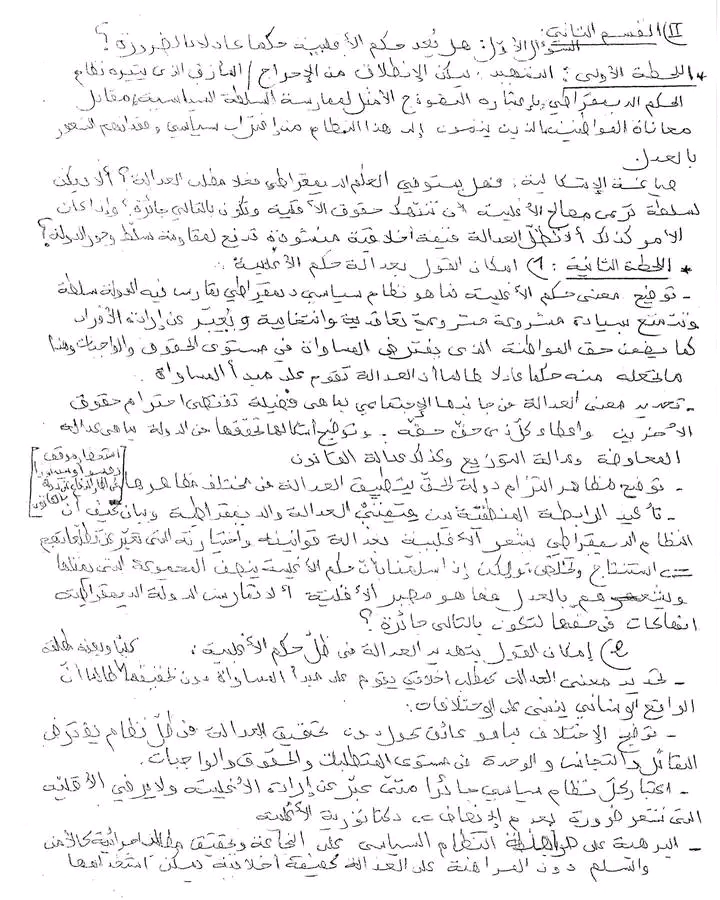 II) القسم الثاني:
السؤال الأول: هل يُعد حكم الأغلبية حكما عادلا بالضرورة؟
* اللحظة الأولى: التمهيد: يمكن الإنطلاق من الإحراج / المأزق الذي يثيره نظام
الحكم الديمقراطي بإعتباره النموذج الأمثل لممارسة السلطة السياسية، مقابل
معاناة المواطنين الذين ينتمون إلى هذا النظام من إغتراب سياسي وفقدانهم الشعور
بالعدل.
صياغة الإشكالية: فهل يستوفي الحكم الديمقراطي فعلا مطلب العدالة؟ ألا يمكن
لسلطة ترعى مصالح الأغلبية أن تنتهك حقوق الأقلية وتكون بالتالي جائرة؟ وإذا كان
الأمر كذلك ألا تظل العدالة قيمة أخلاقية منشودة تدفع لمقاومة تسلط وجور الدولة؟
* اللحظة الثانية: 1) إمكان القول بعدالة حكم الأغلبية:
- توضيح معنى حكم الأغلبية بما هو نظام سياسي ديمقراطي تمارس فيه الدولة سلطة
وتتمتع بسيادة مشروعة مشروعية تعاقدية وانتخابية ويُعبّر عن إرادة الأفراد
كما يضمن حق المواطنة الذي يفترض المساواة في مستوى الحقوق والواجبات وهذا
ما يجعله منه حكما عادلا طالما أن العدالة تقوم على مبدأ المساواة.
- تحديد معنى العدالة من جانبها الإجتماعي بما هي فضيلة تقتضي احترام حقوق
الآخرين وإعطاء كل ذي حق حقه. وتوضيح أشكالها تحققها من الدولة بما هي عدالة
المعاوضة وعدالة التوزيع وكذلك عدالة القانون
- توضيح مظاهر التزام دولة الحق بتطبيق العدالة في مختلف مظاهرها
[استحضار موقف
روسو أو سبينوزا
بالقانون]
- تأكيد الرابطة المنطقية بين قيمتي العدالة والديمقراطية وبيان كيف أن
النظام الديمقراطي يشعر الأقلية بعدالة قوانينه واختياراته التي تعبّر عن تطلعاتهم
=> استنتاج وتخلص: ولكن إذا سلمنا بأن حكم الأغلبية ينصف المجموعة التي يمثلها
ويشعرهم بالعدل فما هو مصير الأقلية ألا تمارس الدولة الديمقراطية
انتهاكات في حقها لتكون بالتالي جائرة؟
2) إمكان القول بتهديد العدالة في ظلّ حكم الأغلبية:
- تحديد معنى العدالة كمطلب أخلاقي يقوم على مبدأ المساواة دون تحقيقها كليا وبصفة مطلقة طالما أنّ
الواقع الإنساني ينبني على الإختلافات.
- توضيح الإختلاف بما هو عائق يحول دون تحقيق العدالة في ظلّ نظام يفترض
التماثل والتجانس والوحدة في مستوى المتطلبات والحقوق والواجبات.
- اعتبار كلّ نظام سياسي جائرا متى عبّر عن إرادة الأغلبية ولا يرضي الأقلية
التي تشعر ضرورة بعدم الإنصاف => دكتاتورية الأغلبية
- البرهنة على النظام السياسي على النجاعة وتحقيق مطالب إجرائية كالأمن
والسلم دون المراهنة على العدالة كقيمة أخلاقية يمكن استخدامها